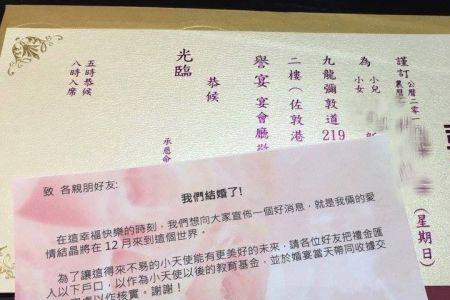 謹訂
公曆二零一
農曆
(星期日
為
小兒
小女
九龍彌敦道219
二樓(佐敦港
譽宴宴會廳敬
恭候
光臨
承恩命
五時恭候
八時入席
致 各親朋好友:
我們結婚了!
在這幸福快樂的時刻，我們想向大家宣佈一個好消息，就是我倆的愛
情結晶將在12月來到這個世界。
為了讓這得來不易的小天使能有更美好的未來，請各位好友把禮金匯
入以下戶口，以作為小天使以後的教育基金，並於婚宴當天帶同收據交
以作核實。謝謝!